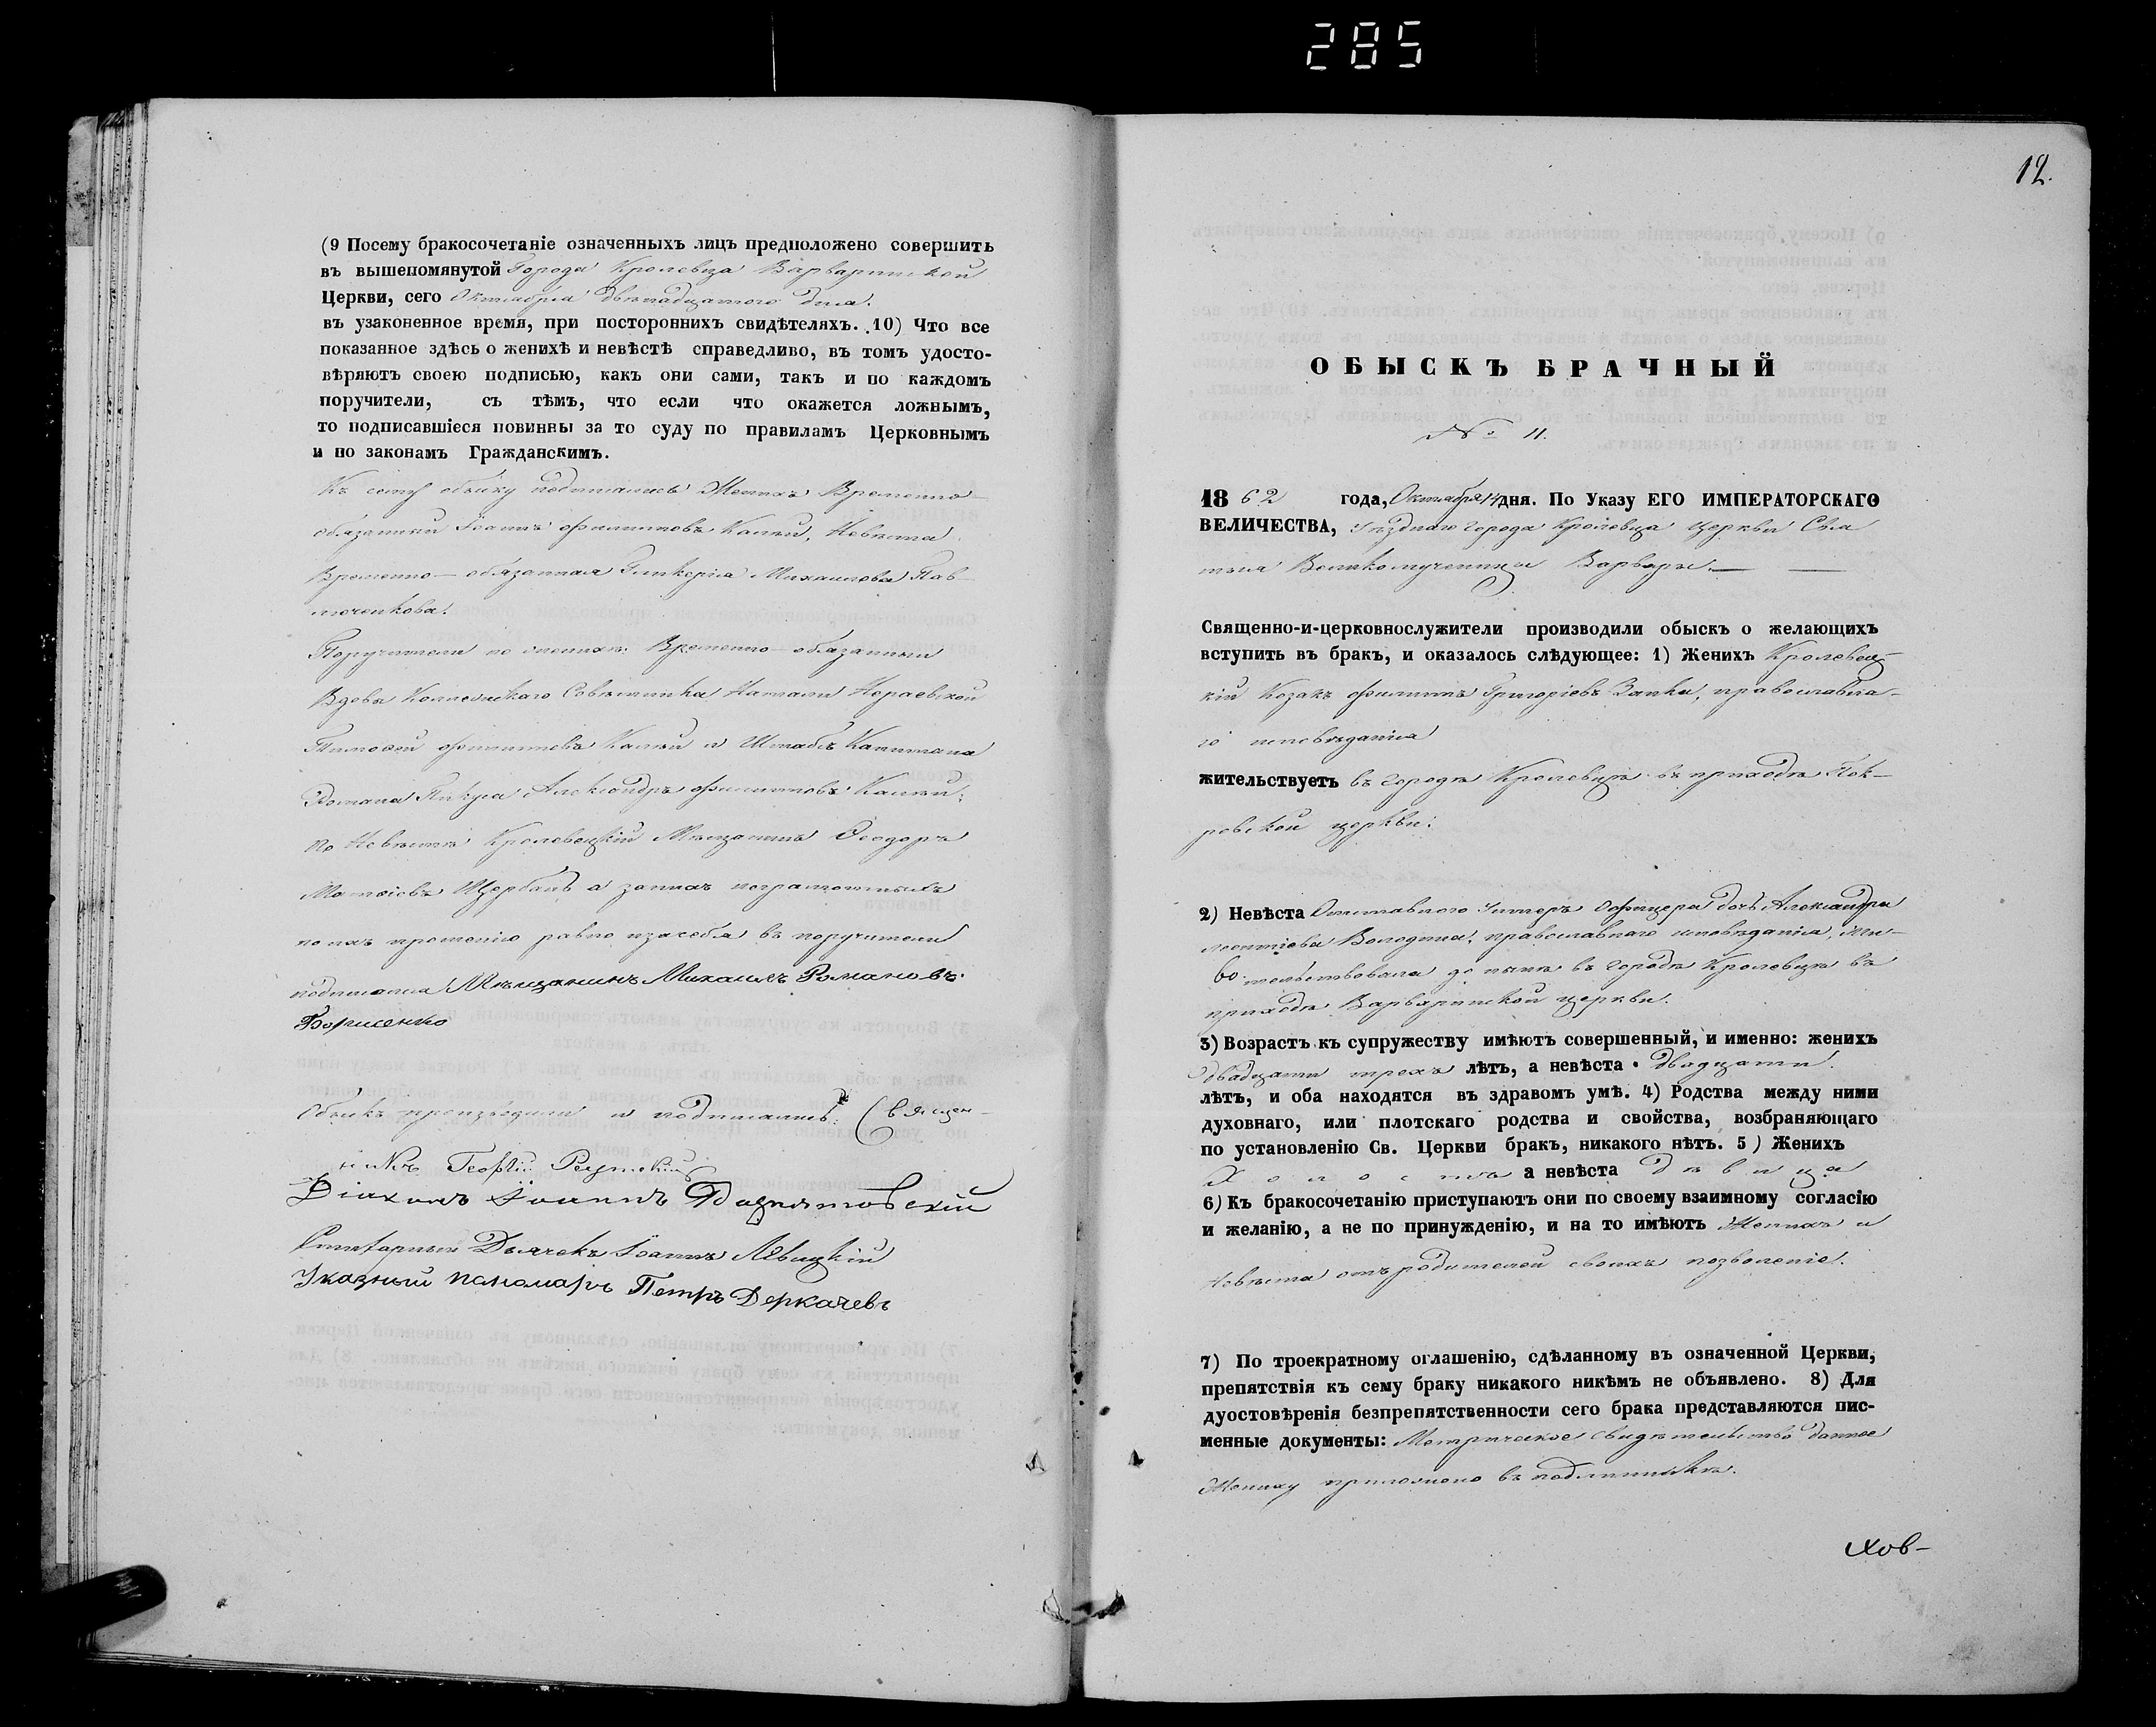 285
(9 Посему бракосочетаніе означенныхъ лицъ предположено совершить
въ вышепомянутой Города Кролевца Варваринской
Церкви, сего Октября двѣнадцатого дня.
въ узаконенное время, при постороннихъ свидѣтеляхъ. 10) Что все
показанное здѣсь о женихѣ и невѣстѣ справедливо, въ томъ удосто-
вѣряютъ своею подписью, какъ они сами, такъ и по каждомъ
поручители, съ тѣмъ, что если что окажется ложнымъ,
то подписавшіеся повинны за то суду по правиламъ Церковнымъ
и по законамъ Гражданскимъ.
Къ сему обыску подписались Женихъ Временно-
обязанный Іоаннъ Филипповъ Невѣста
Временно-обязанная Гликерія Михаилова Пав-
люченкова.
Поручители по женихѣ: Временно-обязанный
Вдовы Коллежскаго Совѣтника Натальи
Тимофей Филипповъ и Штабсъ Капитана
Романа Александръ Филипповъ
По Невѣстѣ Кролевецкій Мѣщанинъ Ѳеодоръ
Матѳіевъ Щербакъ а за нихъ неграмотныхъ
по ихъ прошенію равно и за себя въ поручители
подписался Мѣщанинъ Михаилъ Романовъ
Борисенко
Обыскъ производили и подписались: Священ-
никъ Георгій
Діаконъ Іоаннъ
Дьячекъ Іоаннъ Левицкій
Указный пономарь Петръ Деркачевъ
12.
ОБЫСКЪ БРАЧНЫЙ
№ 11.
1862 года, Октября 14 дня. По Указу ЕГО ИМПЕРАТОРСКАГО
ВЕЛИЧЕСТВА, Уѣзднаго города Кролевца церкви Свя
тыя Великомученицы Варвары.— —
Священно-и-церковнослужители производили обыскъ о желающихъ
вступить въ брак, и оказалось слѣдующее: 1) Женихъ Кролевец-
кій Козакъ Филиппъ Григоріевъ православна-
го исповѣданія
жительствуетъ въ городѣ Кролевцѣ въ приходѣ Пок-
ровской церкви:
2) Невѣста Отставного Унтеръ Офицера дочь Александра
Леонтіева Володина, православнаго исповѣданія, жи-
тельствовала до нынѣ въ городѣ Кролевцѣ въ
приходѣ Варваринской церкви.
3) Возрастъ къ супружеству имѣютъ совершенный, и именно: женихъ
двадцати трехъ лѣтъ, а невѣста двадцати.
лѣтъ, и оба находятся въ здравомъ умѣ. 4) Родства между ними
духовнаго, или плотскаго родства и свойства, возбраняющаго
по установленію Св. Церкви бракъ, никакого нѣтъ. 5) Женихъ
Холостъ а невѣста дѣвица
6) Къ бракосочетанію приступаютъ они по своему взаимному согласію
и желанію, а не по принужденію, и на то имѣютъ Женихъ и
Невѣста отъ родителей своихъ позволеніе.
7) По троекратному оглашенію, сдѣланному въ означенной Церкви,
препятствія къ сему браку никакого никѣмъ не объявлено. 8) Для
дуостовѣренія безпрепятственности сего брака представляются пис-
менные документы: Метрическое свидѣтельство данное
Жениху приложено въ подлинникѣ.